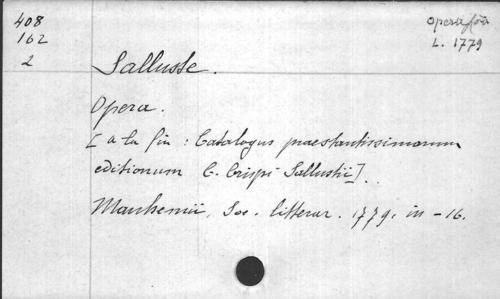 408
162
2
opera
L. 1779
Salluste.
Opera.
[à la fin : Catalogus praestantissimarum
editionum C. Crispi Sallustii].
Manhemii, Soc. litterar. 1779. in-16.